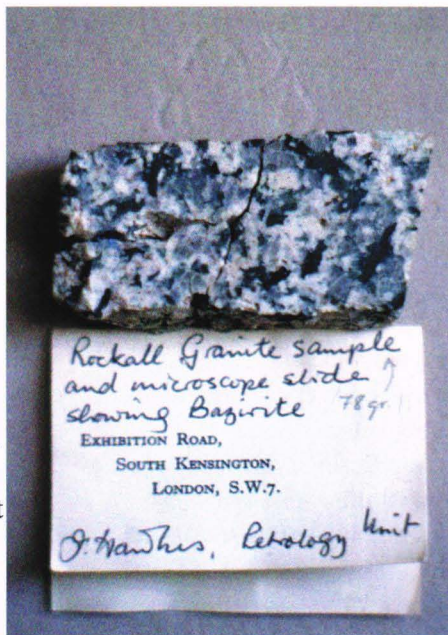 Rockall Granite sample
and microscope slide ↑
showing Bazirite 78gr.
EXHIBITION ROAD,
SOUTH KENSINGTON,
LONDON, S.W.7.
Petrology Unit
t